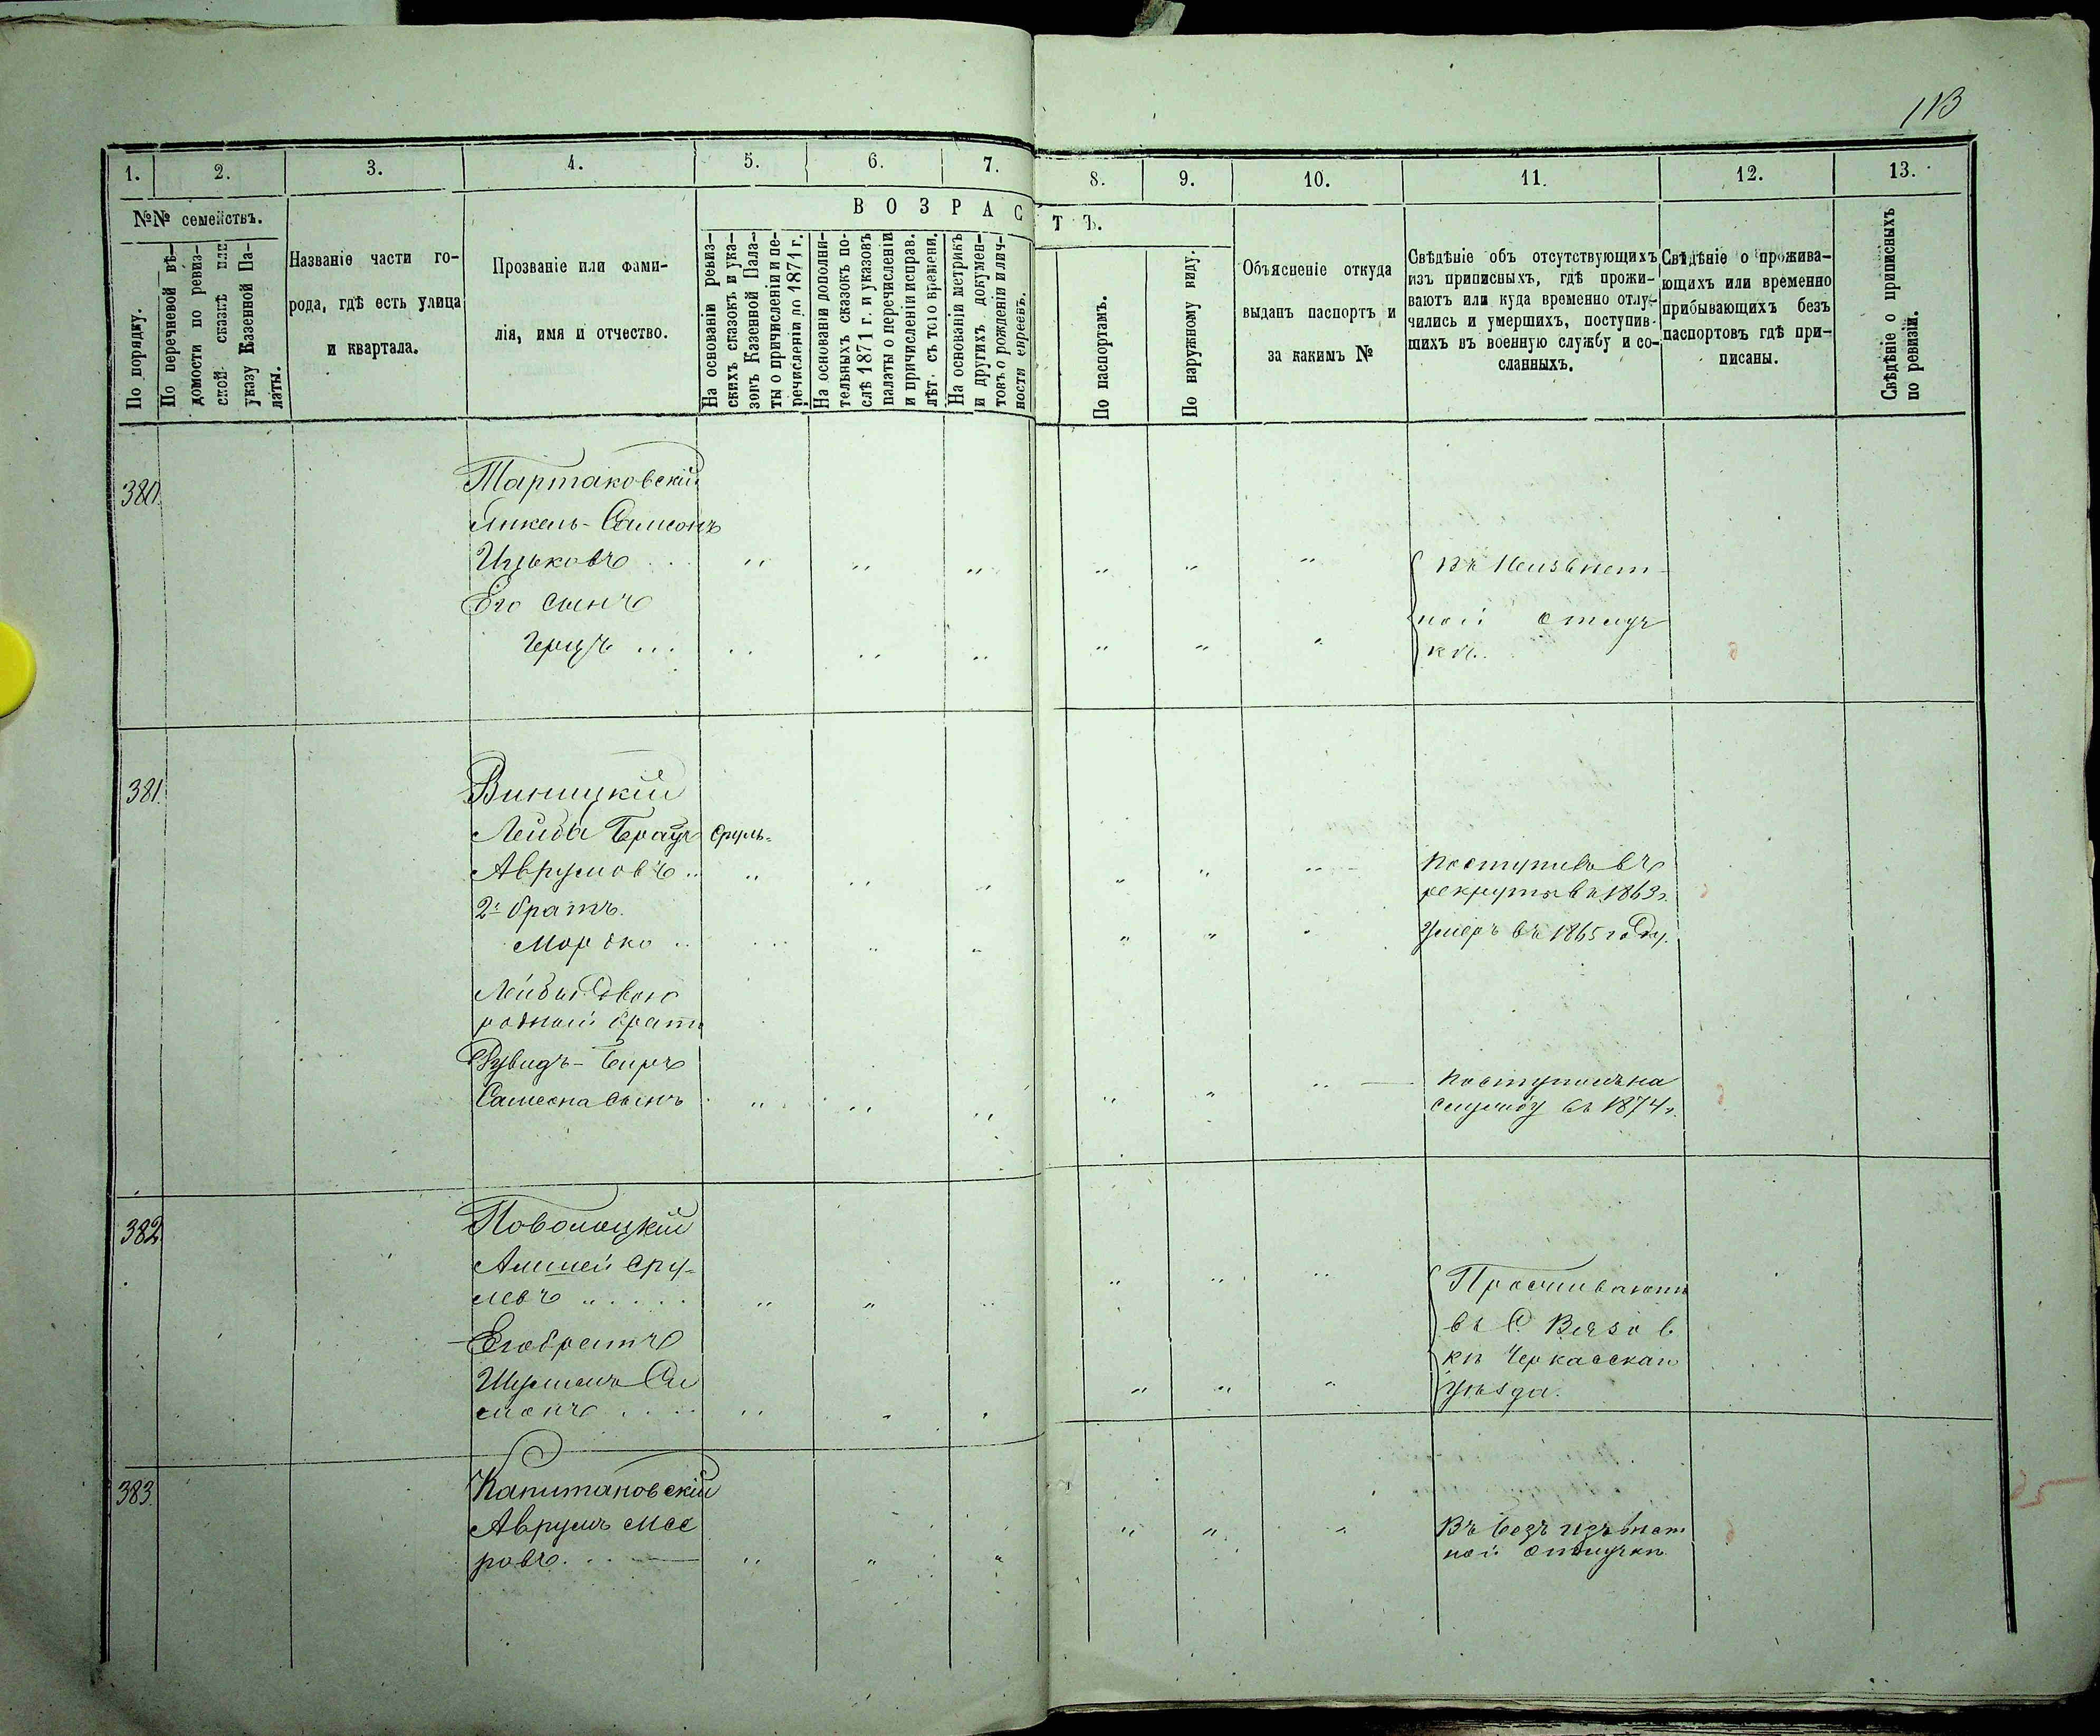 113
1. 2. 3. 4. 5. 6. 7. 8. 9. 10. 11. 12. 13.
№№ семействъ.
По порядку.
По перечневой вѣ-
домости по ревиз-
ской сказкѣ или
указу Казенной Па-
латы.
Названіе части го-
рода, гдѣ есть улица
и квартала.
Прозваніе или фами-
лія, имя и отчество.
ВОЗРАСТЪ.
На основаніи ревиз-
скихъ сказокъ и ука-
зовъ Казенной Пала-
ты о причисленіи и пе-
речисленіи по 1871 г.
На основаніи дополни-
тельныхъ сказокъ по-
слѣ 1871 г. и указовъ
палаты о перечисленіи
и причисленіи исправ.
лѣт. съ того времени.
На основаніи метрикъ
и другихъ докумен-
товъ о рожденіи и лич-
ности евреевъ.
По паспортамъ.
По наружному виду.
Объясненіе откуда
выданъ паспортъ и
за какимъ №
Свѣдѣніе объ отсутствующихъ
изъ приписныхъ, гдѣ прожи-
ваютъ или куда временно отлу-
чились и умершихъ, поступив-
шихъ въ военную службу и со-
сланныхъ.
Свѣдѣніе о прожива-
ющихъ или временно
прибывающихъ безъ
паспортовъ гдѣ при-
писаны.
Свѣдѣніе о приписныхъ
по ревизіи.
380.
Тартаковскій
Янкель-Самсонъ
Ицьковъ
Его сынъ
Герцъ
въ неизвѣст-
ной отлуч
кѣ.
381.
Виницкій
Лейба Срауль
Сруль-
Аврумовъ
2й братъ
Мордко
Лейбы двою
родный братъ
Рувидъ-Беръ
Самсона сынъ
поступилъ въ
рекруты въ 1863 г.
Умеръ въ 1865 году.
поступилъ на
службу въ 1874 г.
382.
Поволоцкій
Алишей Сру-
левъ
Его братъ
Шулимъ Си
монъ
Проживаютъ
въ С. Вязов
кѣ Черкасскаго
уѣзда.
383.
Капитановскій
Аврумъ Мее
ровъ.
Въ безъизвѣст
ной отлучкѣ